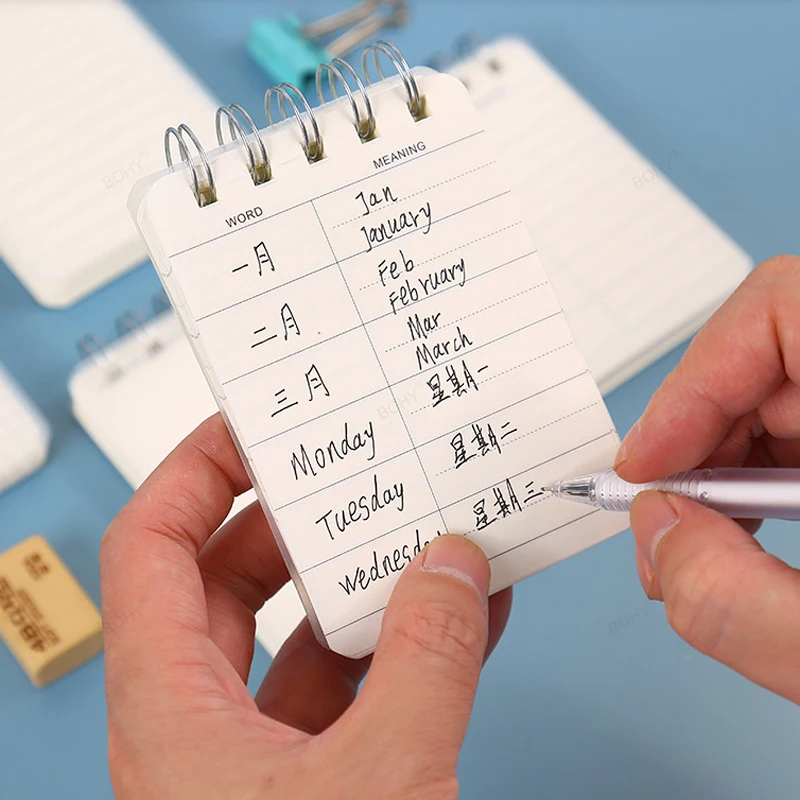 WORD MEANING
一月 Jan
January
二月 Feb
February
三月 Mar
March
Monday 星期一
Tuesday 星期二
Wednesday 星期三
4B
BOHY